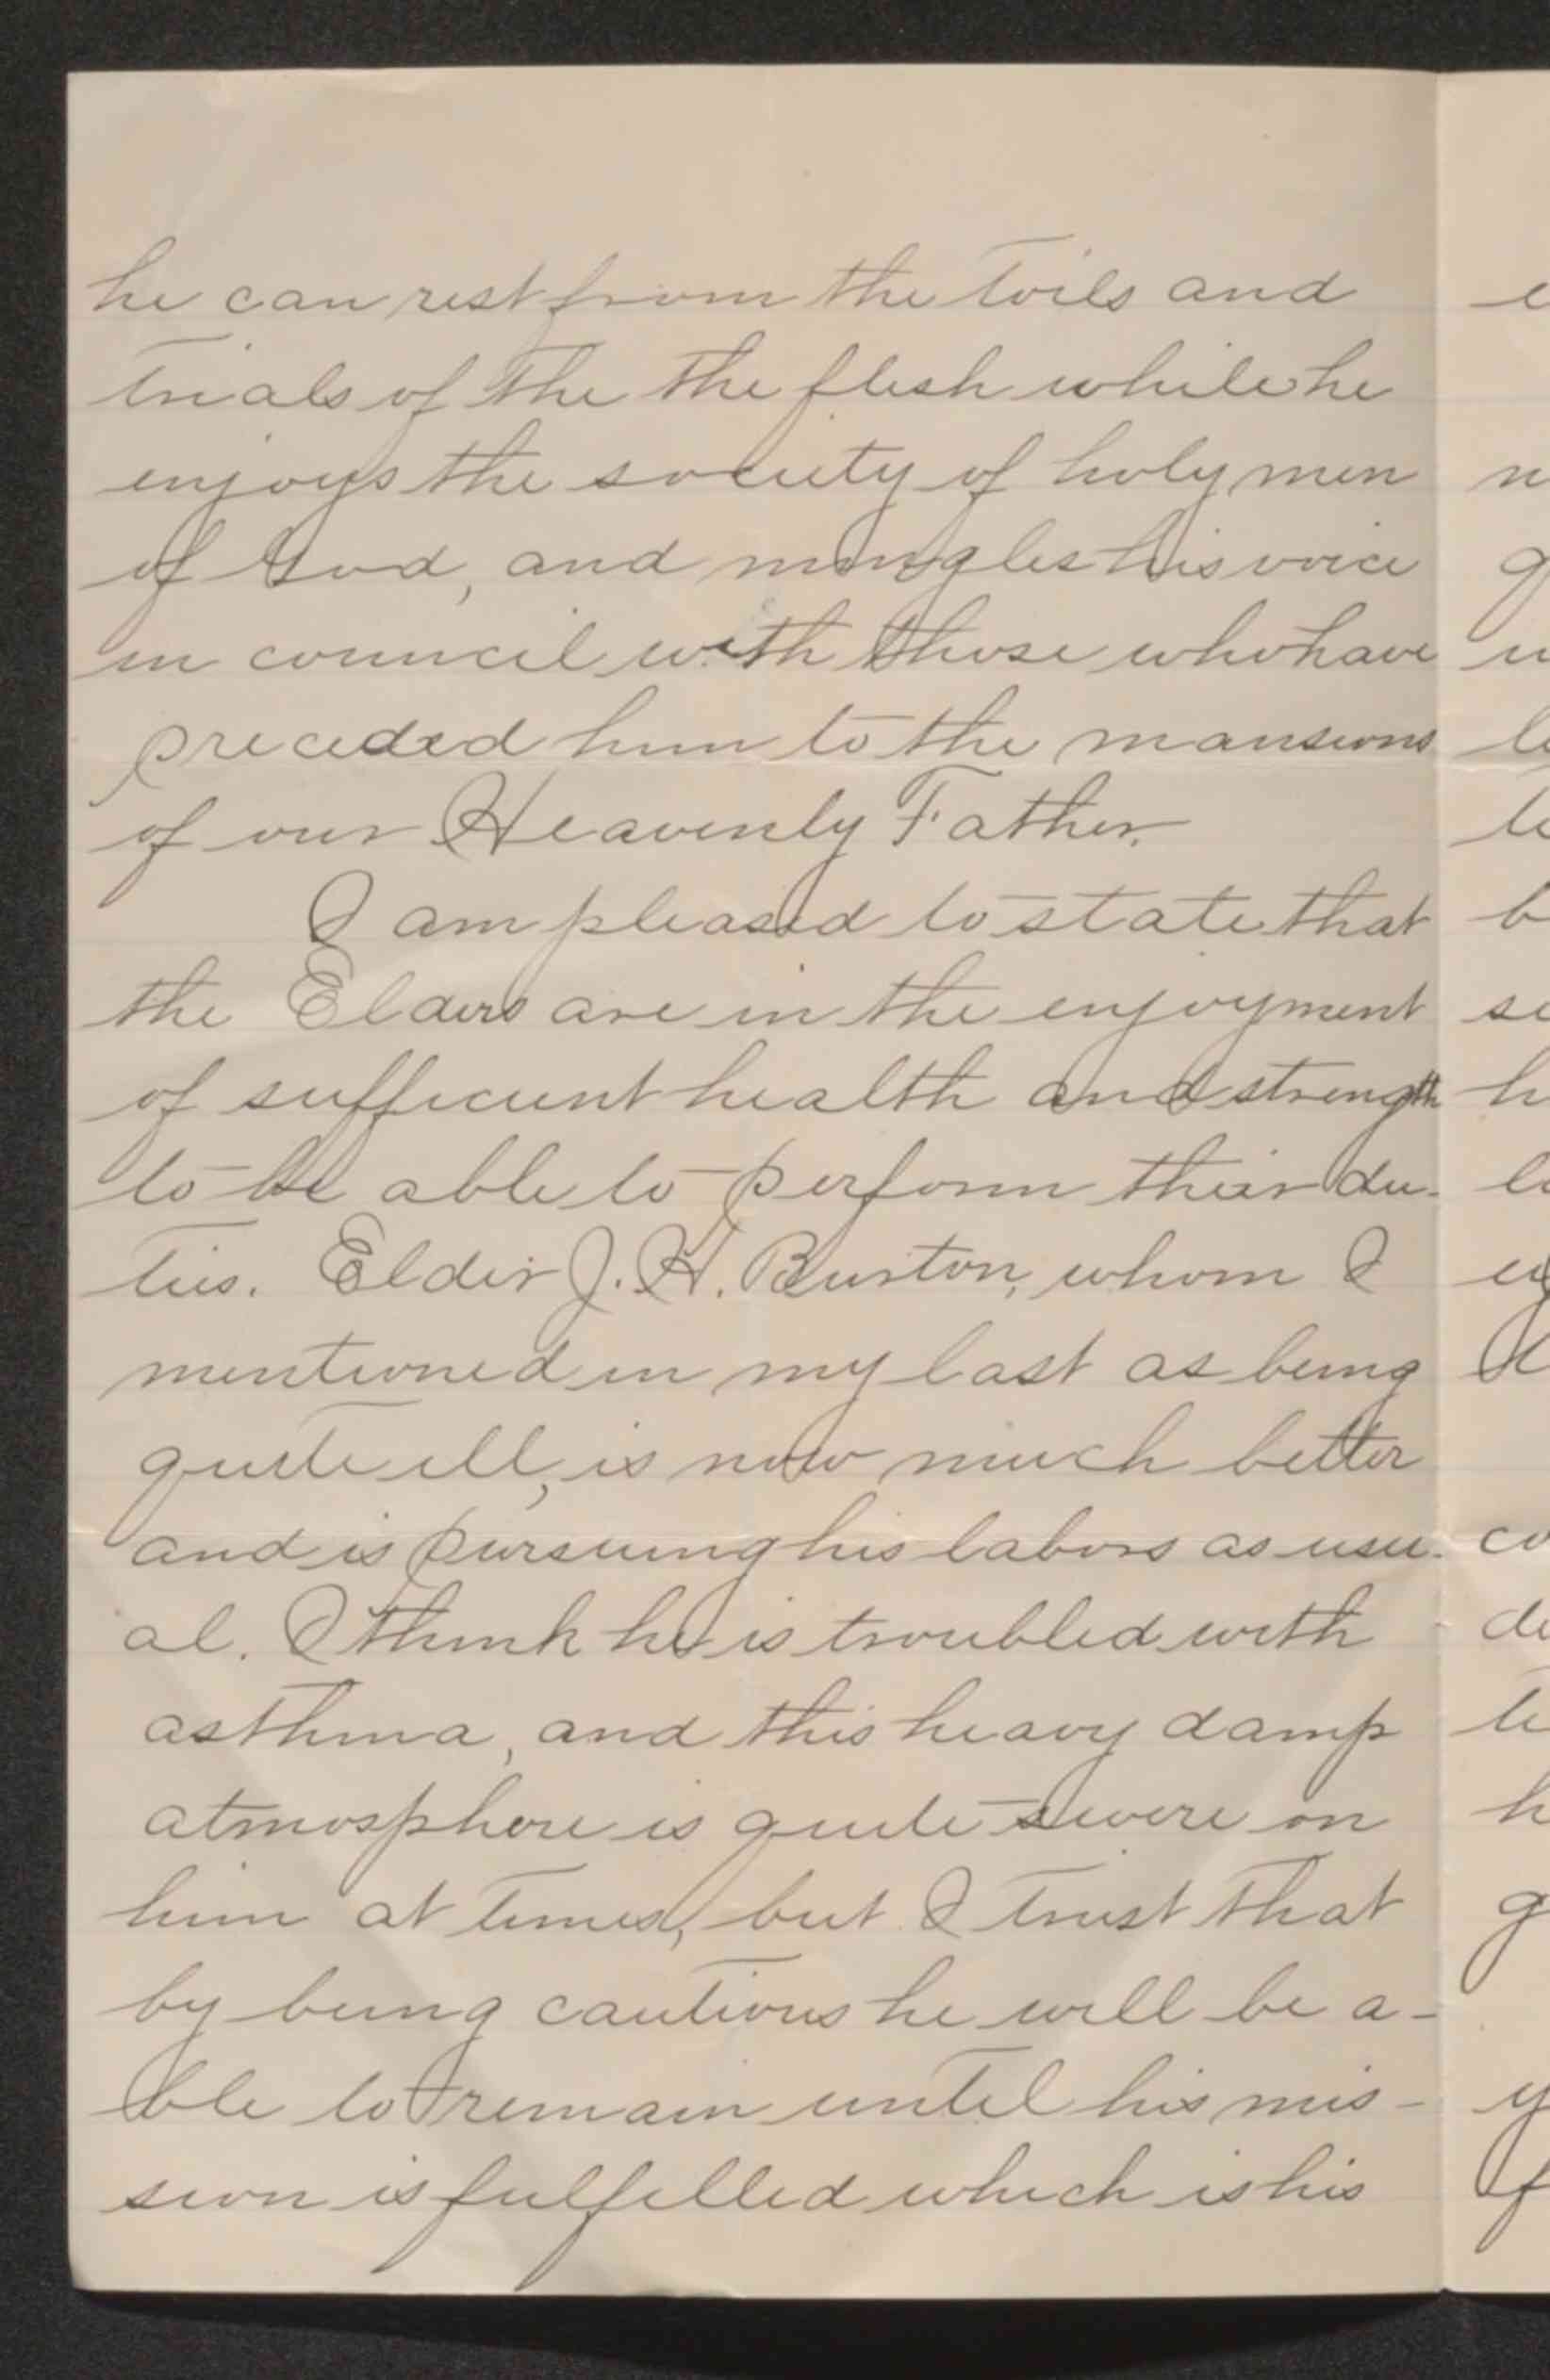 he can rest from the toils and
trials of the the flesh while he
enjoys the society of holy men
of God, and mingles his voice
in council with those who have
preceded him to the mansions
of our Heavenly Father.
I am pleased to state that
the Elders are in the enjoyment
of sufficient health and strength
to be able to perform their du-
ties. Elder J. H. Burton, whom I
mentioned in my last as being
quite ill, is now much better
and is pursuing his labors as usu-
al. I think he is troubled with
asthma, and this heavy damp
atmosphere is quite severe on
him at times, but I trust that
by being cautious he will be a-
ble to remain until his mis-
sion is fulfilled which is his